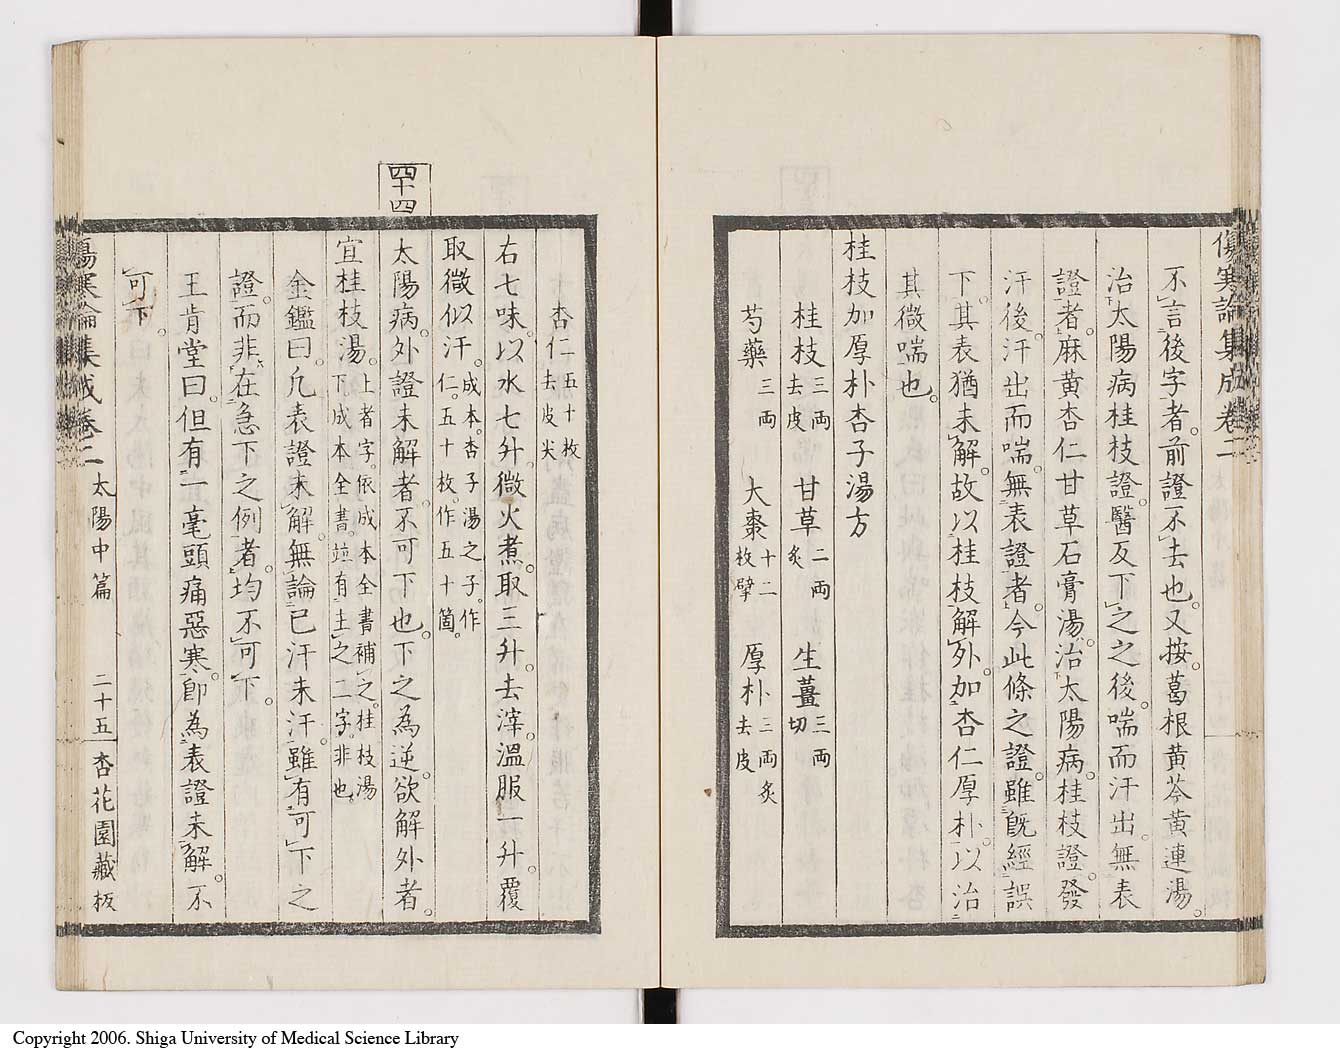 傷寒論集成卷二
不言後字者。前證不去也。又按。葛根黃芩黃連湯。
治太陽病桂枝證。醫反下之之後。喘而汗出。無表
證者。麻黃杏仁甘草石膏湯。治太陽病。桂枝證。發
汗後。汗出而喘。無表證者。今此條之證。雖既經誤
下。其表猶未解。故以桂枝解外。加杏仁厚朴。以治
其微喘也。
桂枝加厚朴杏子湯方
桂枝三兩去皮 甘草二兩炙 生薑三兩切
芍藥三兩 大棗十二枚擘 厚朴三兩炙去皮
杏仁五十枚去皮尖
右七味。以水七升。微火煮。取三升。去滓。溫服一升。覆
取微似汗。成本。杏子湯之子。作仁。五十枚。作五十箇。
四十四
太陽病。外證未解者。不可下也。下之為逆。欲解外者。
宜桂枝湯。上者字。依成本全書補之。桂枝湯下。成本全書。竝有主之二字。非也。
金鑑曰。凡表證未解。無論已汗未汗。雖有可下之
證。而非在急下之例者。均不可下。
王肯堂曰。但有一毫頭痛惡寒。即為表證未解。不
可下。
傷寒論集成卷二 太陽中篇 二十五 杏花園藏板
Copyright 2006. Shiga University of Medical Science Library